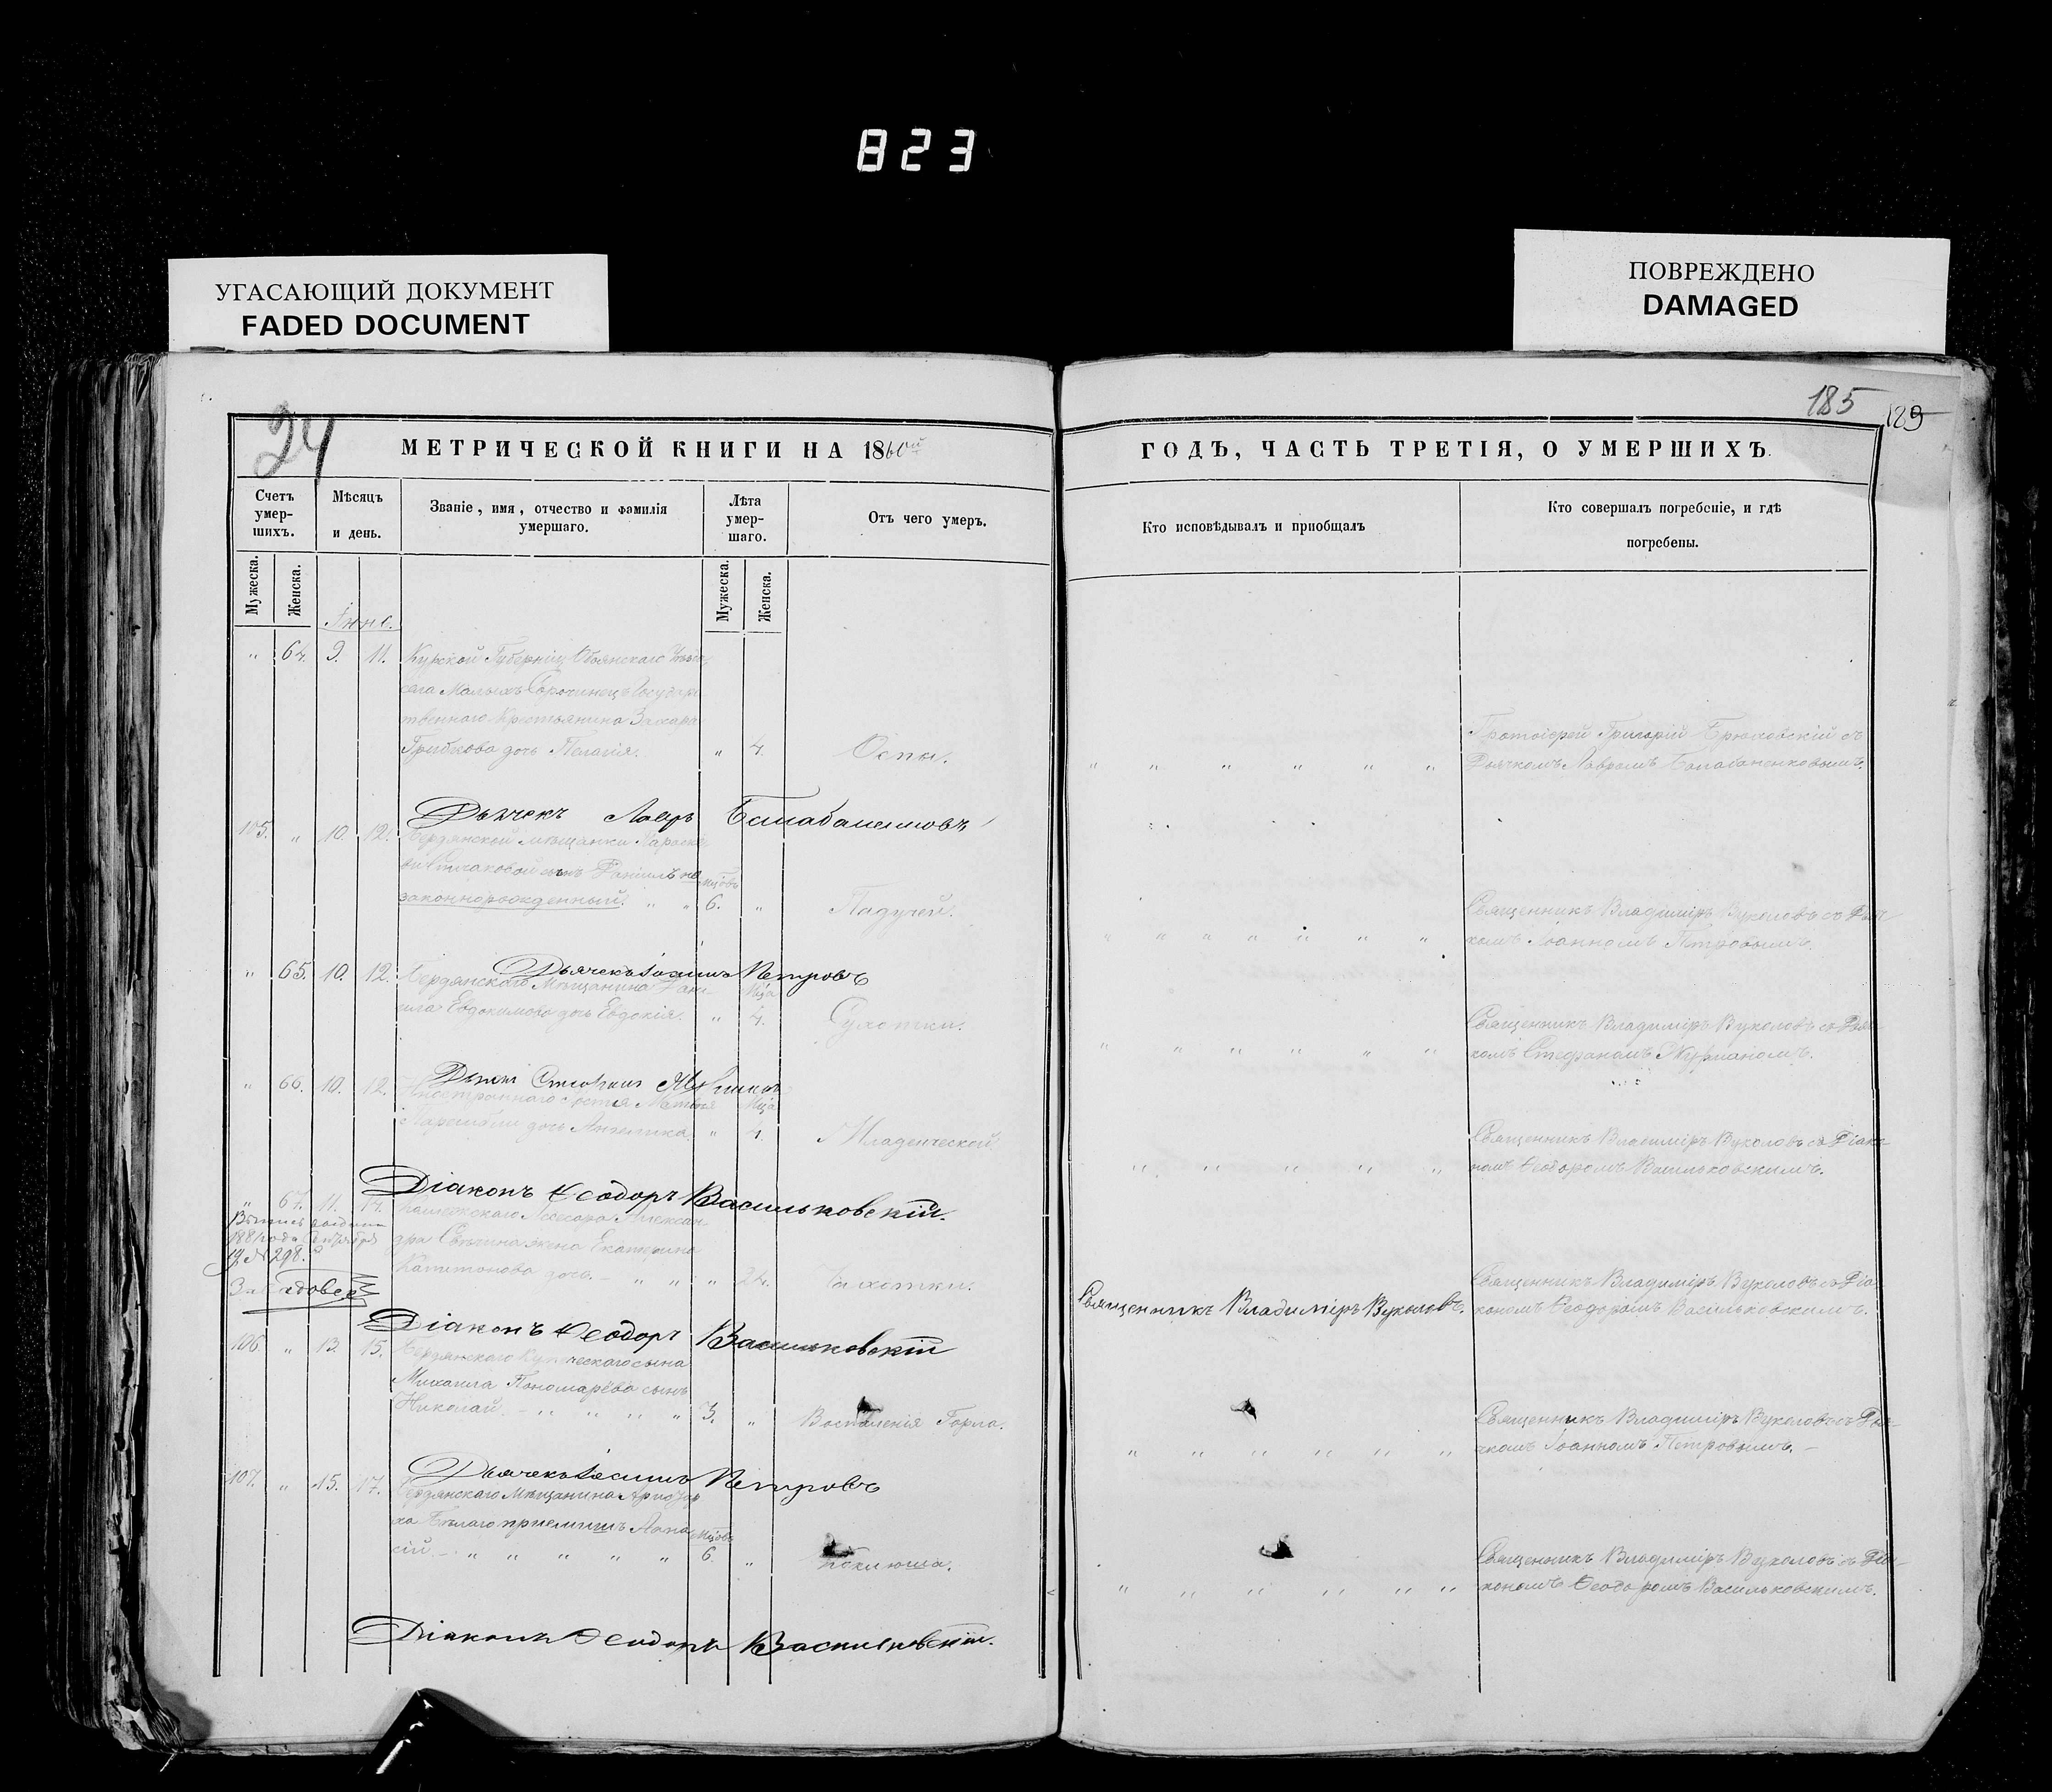 823
УГАСАЮЩИЙ ДОКУМЕНТ
FADED DOCUMENT
ПОВРЕЖДЕНО
DAMAGED
24
185
189
МЕТРИЧЕСКОЙ КНИГИ НА 1860ый
ГОДЪ, ЧАСТЬ ТРЕТІЯ, О УМЕРШИХЪ.
Счетъ умер-шихъ.
Мѣсяцъ и день.
Званіе, имя, отчество и фамилія умершаго.
Лѣта умер-шаго.
Отъ чего умеръ.
Кто исповѣдывалъ и пріобщалъ
Кто совершалъ погребеніе, и гдѣ погребены.
Мужеска.
Женска.
Мужеска.
Женска.
Іюне.
" 64. 9. 11. Курской Губерніи Обоянскаго
села Малыхъ Сорочинецъ Государ
твеннаго Крестьянина Захара
Грибкова дочь Пелагія. " 4. Оспы.
Протоіерей Григорій Брюховскій съ
Дьячкомъ Лавромъ Балабаненковымъ.
Дьячекъ Лавръ Балабаненковъ
105. " 10. 12. Бердянской мѣщанки Параске
сынъ Даніилъ не
законнорожденный. " " 6. " Падучей.
Священникъ Владиміръ Вуколовъ съ Дьяч
комъ Іоанномъ Петровымъ.
Дьячекъ Іоаннъ Петровъ
" 65. 10. 12. Бердянскаго Мѣщанина Дані
ила Евдокимова дочь Евдокія. " Мца 4. Сухотки.
Священникъ Владиміръ Вуколовъ съ Дьяч
комъ Стефаномъ Журманомъ.
Стефанъ
" 66. 10. 12. Иностраннаго гостя Матвея
дочь Анжелика " Мца 4. Младенческой.
Священникъ Владиміръ Вуколовъ съ Діако
номъ Ѳеодоромъ Васильковскимъ.
Діаконъ Ѳеодоръ Васильковскій.
" 67. 11. Коллежскаго Ассесора Алексан-
дра жена Екатерина
Капитонова дочь. " " " 24. Чахотки.
1881 года
19 № 298.
Священникъ Владиміръ Вуколовъ.
Священникъ Владиміръ Вуколовъ съ Діа
кономъ Ѳеодоромъ Васильковскимъ.
Діаконъ Ѳеодоръ Васильковскій
106. " 13. 15. Бердянскаго Купеческаго сына
Михаила Пономарёва сынъ
Николай. " " " " 3. " Воспаленія Горла.
Священникъ Владиміръ Вуколовъ съ Дья-
чкомъ Іоанномъ Петровымъ.
Дьячекъ Іоаннъ Петровъ
107. " 15. 17. Бердянскаго Мѣщанина
Бѣлаго приемышъ
сій. " " " " " 6. " Коклюша.
Священникъ Владиміръ Вуколовъ съ Діа-
кономъ Ѳеодоромъ Васильковскимъ.
Діаконъ Ѳеодоръ Васильковскій.